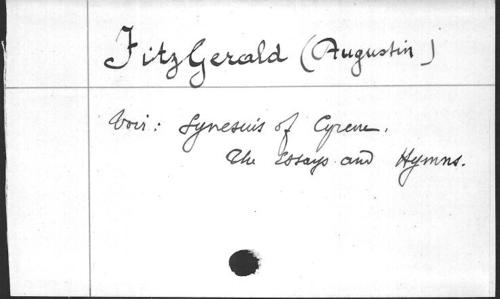 FitzGerald (Augustin)
Voir : Synesius of Cyrene.
The Essays and Hymns.